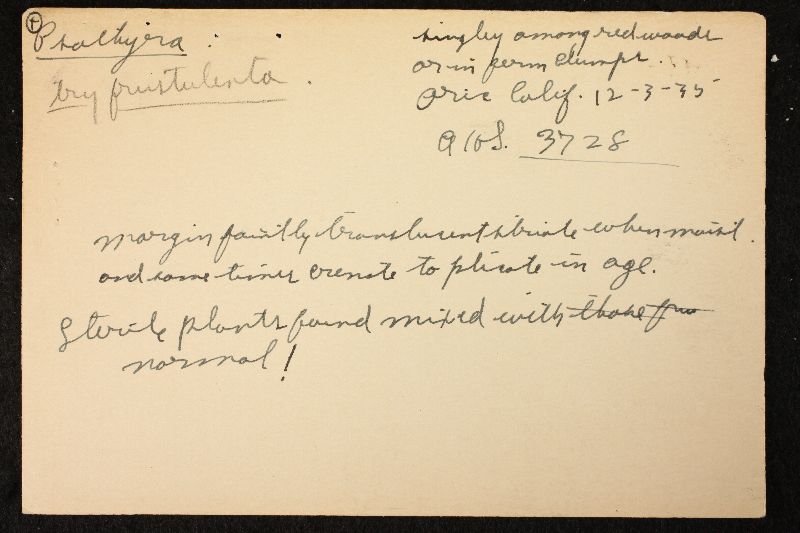 Psathyra :
try frustulenta.
singley among redwoods
or in ferm clumps
Oric Calif. 12-3-35
AHS. 3728
margin faintly translucent striate when moist.
and some times crenate to plicate in age.
Sterile plants found mixed with those
normal!